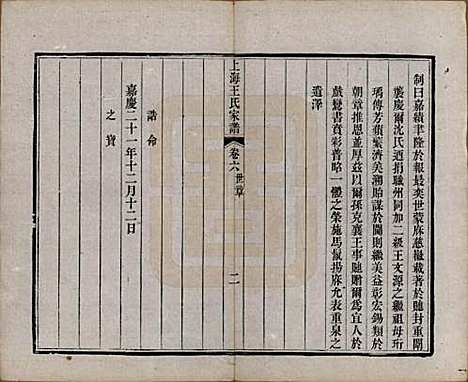 制曰嘉績聿隆於報最奕世蒙庥慈徽載著於馳封重闈
襲慶爾沈氏迺捐職州同加二級王文源之繼祖母珩
瑀傳芳蘋蘩濟美溯貽謀於閫則繼美益彰宏錫類於
朝章推恩並厚茲以爾孫克襄王事貤贈爾為宜人於
戲鸞書賁彩普昭一體之榮施馬鬣揚庥允表重泉之
遺澤
上海王氏家譜
卷六 世章
二
誥命
嘉慶二十一年十二月十二日
之寶